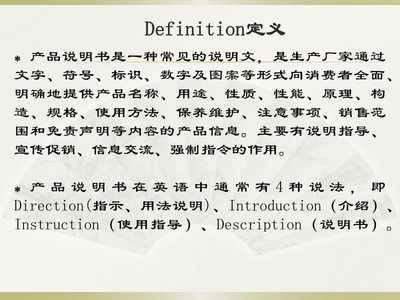 Definition定义
* 产品说明书是一种常见的说明文，是生产厂家通过
文字、符号、标识、数字及图案等形式向消费者全面、
明确地提供产品名称、用途、性质、性能、原理、构
造、规格、使用方法、保养维护、注意事项、销售范
围和免责声明等内容的产品信息。主要有说明指导、
宣传促销、信息交流、强制指令的作用。
* 产品说明书在英语中通常有4种说法，即
Direction(指示、用法说明)、Introduction（介绍）、
Instruction（使用指导）、Description（说明书）。